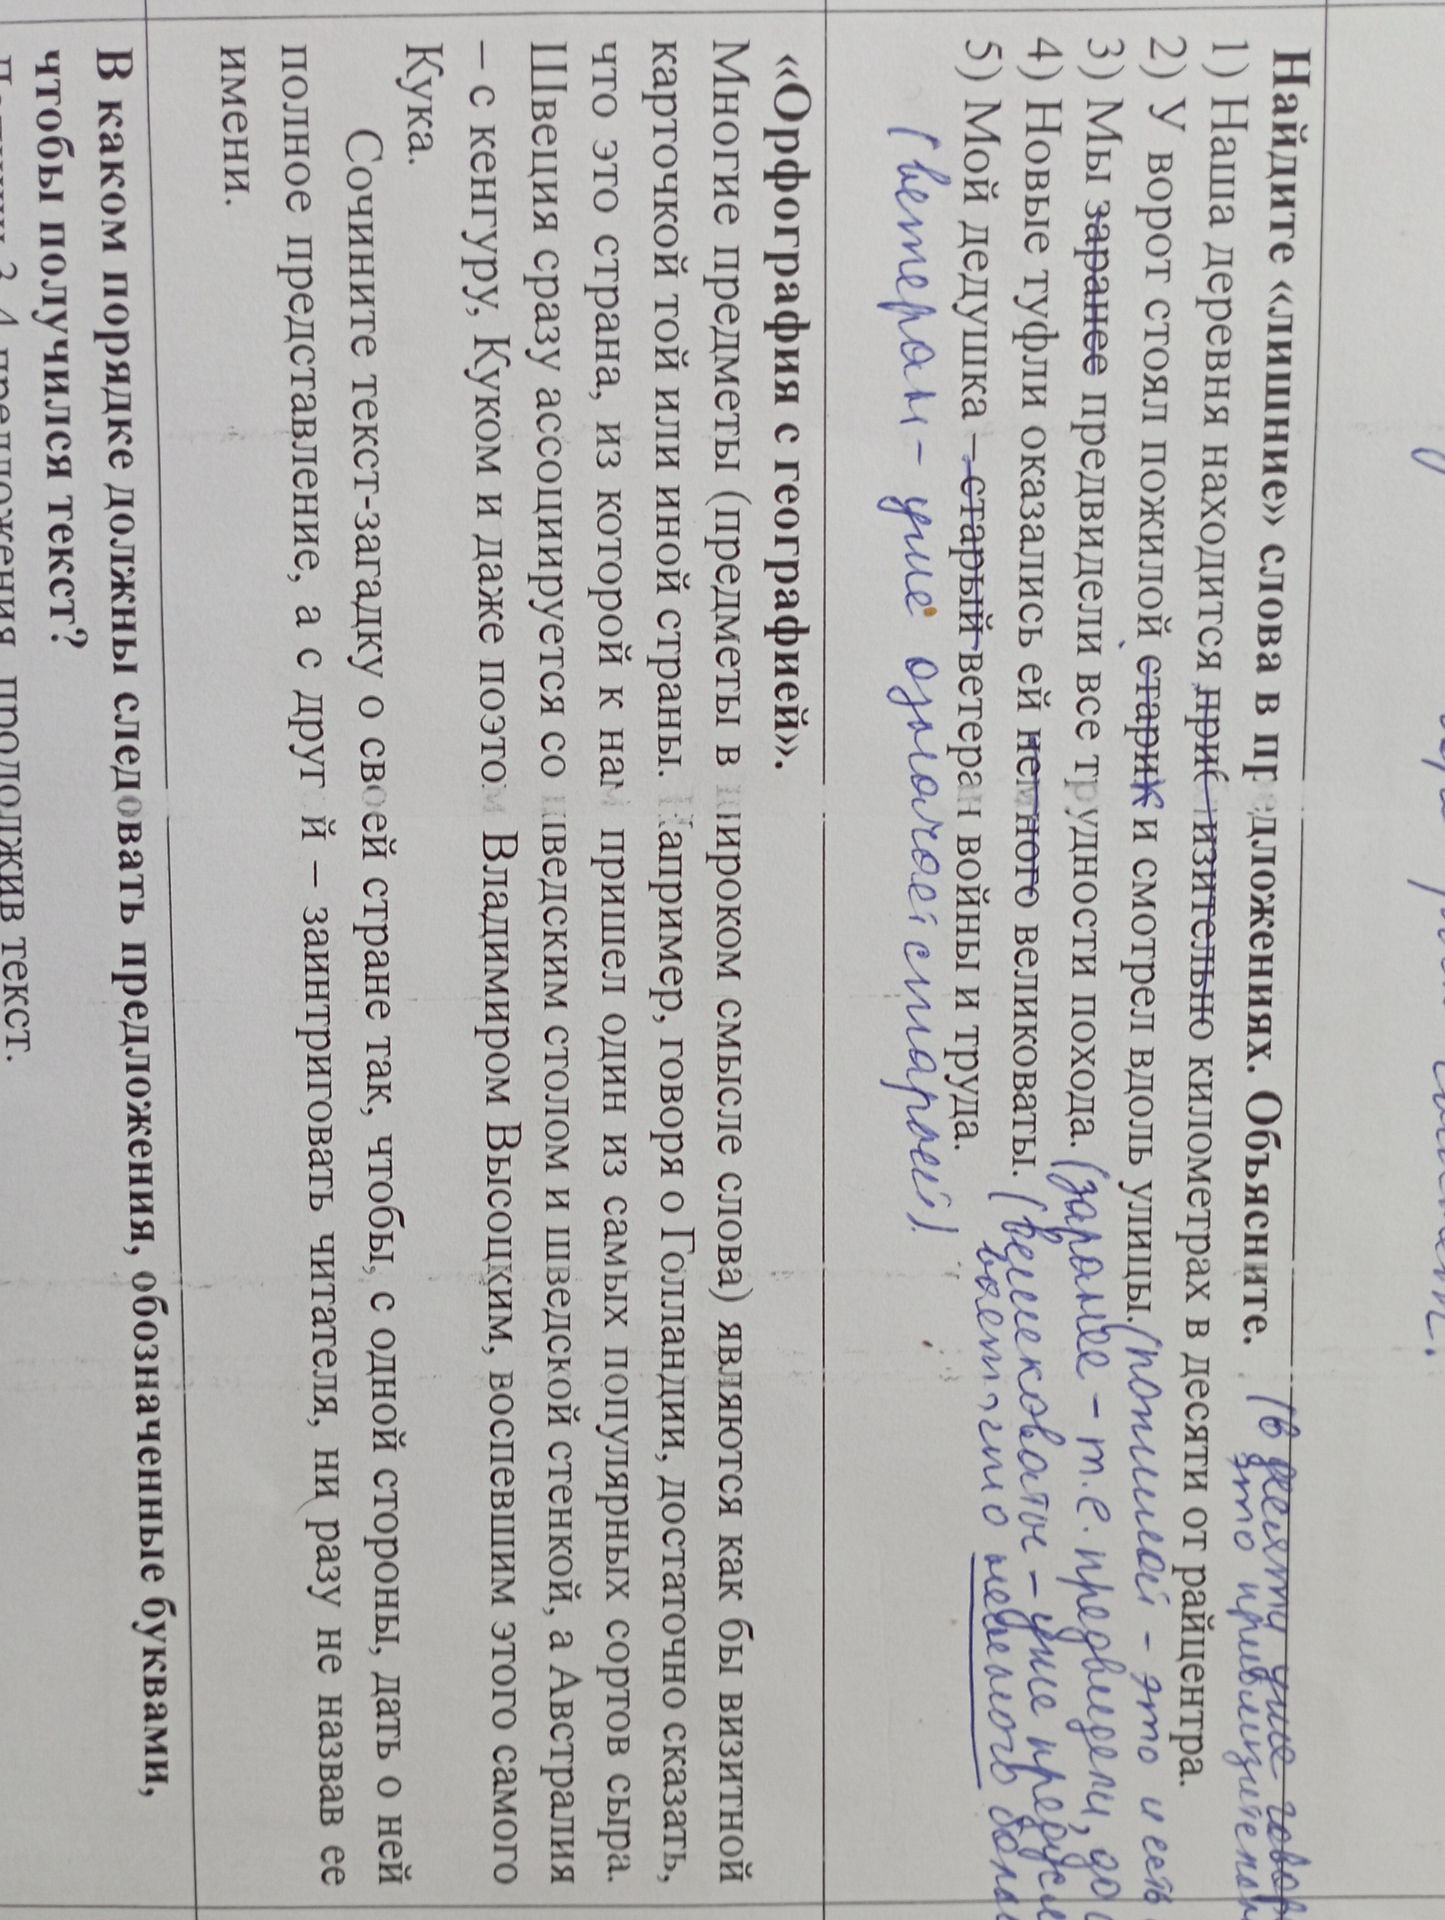 Найдите «лишние» слова в предложениях. Объясните.
1) Наша деревня находится приблизительно километрах в десяти от райцентра.
2) У ворот стоял пожилой старик и смотрел вдоль улицы. (пожилой - это и есть
3) Мы заранее предвидели все трудности похода. (заранее - т.е. предвидели, до
4) Новые туфли оказались ей немного великоваты. (великоваты - уже
5) Мой дедушка – старый ветеран войны и труда.
немного
(ветеран - уже означает старый)
«Орфография с географией».
Многие предметы (предметы в широком смысле слова) являются как бы визитной
карточкой той или иной страны. Например, говоря о Голландии, достаточно сказать,
что это страна, из которой к нам пришел один из самых популярных сортов сыра.
Швеция сразу ассоциируется со шведским столом и шведской стенкой, а Австралия
– с кенгуру, Куком и даже поэтом Владимиром Высоцким, воспевшим этого самого
Кука.
Сочините текст-загадку о своей стране так, чтобы, с одной стороны, дать о ней
полное представление, а с другой – заинтриговать читателя, ни разу не назвав ее
имени.
В каком порядке должны следовать предложения, обозначенные буквами,
чтобы получился текст?
3, 4 предложения, продолжив текст.